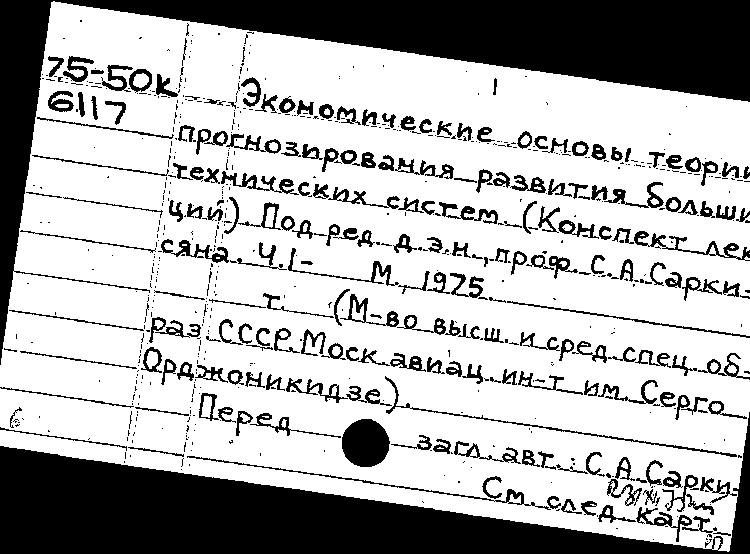 1
75-50к
6117
Экономические основы теории
прогнозирования развития больши
технических систем. (Конспект лек
ций). Под ред. д.э.н., проф. С.А.Сарки-
сяна. Ч.1- М., 1975.
т. (М-во высш. и сред. спец. об-
раз. СССР. Моск. авиац. ин-т им. Серго
Орджоникидзе).
Перед загл. авт.: С.А.Сарки-
См. след. карт.
6